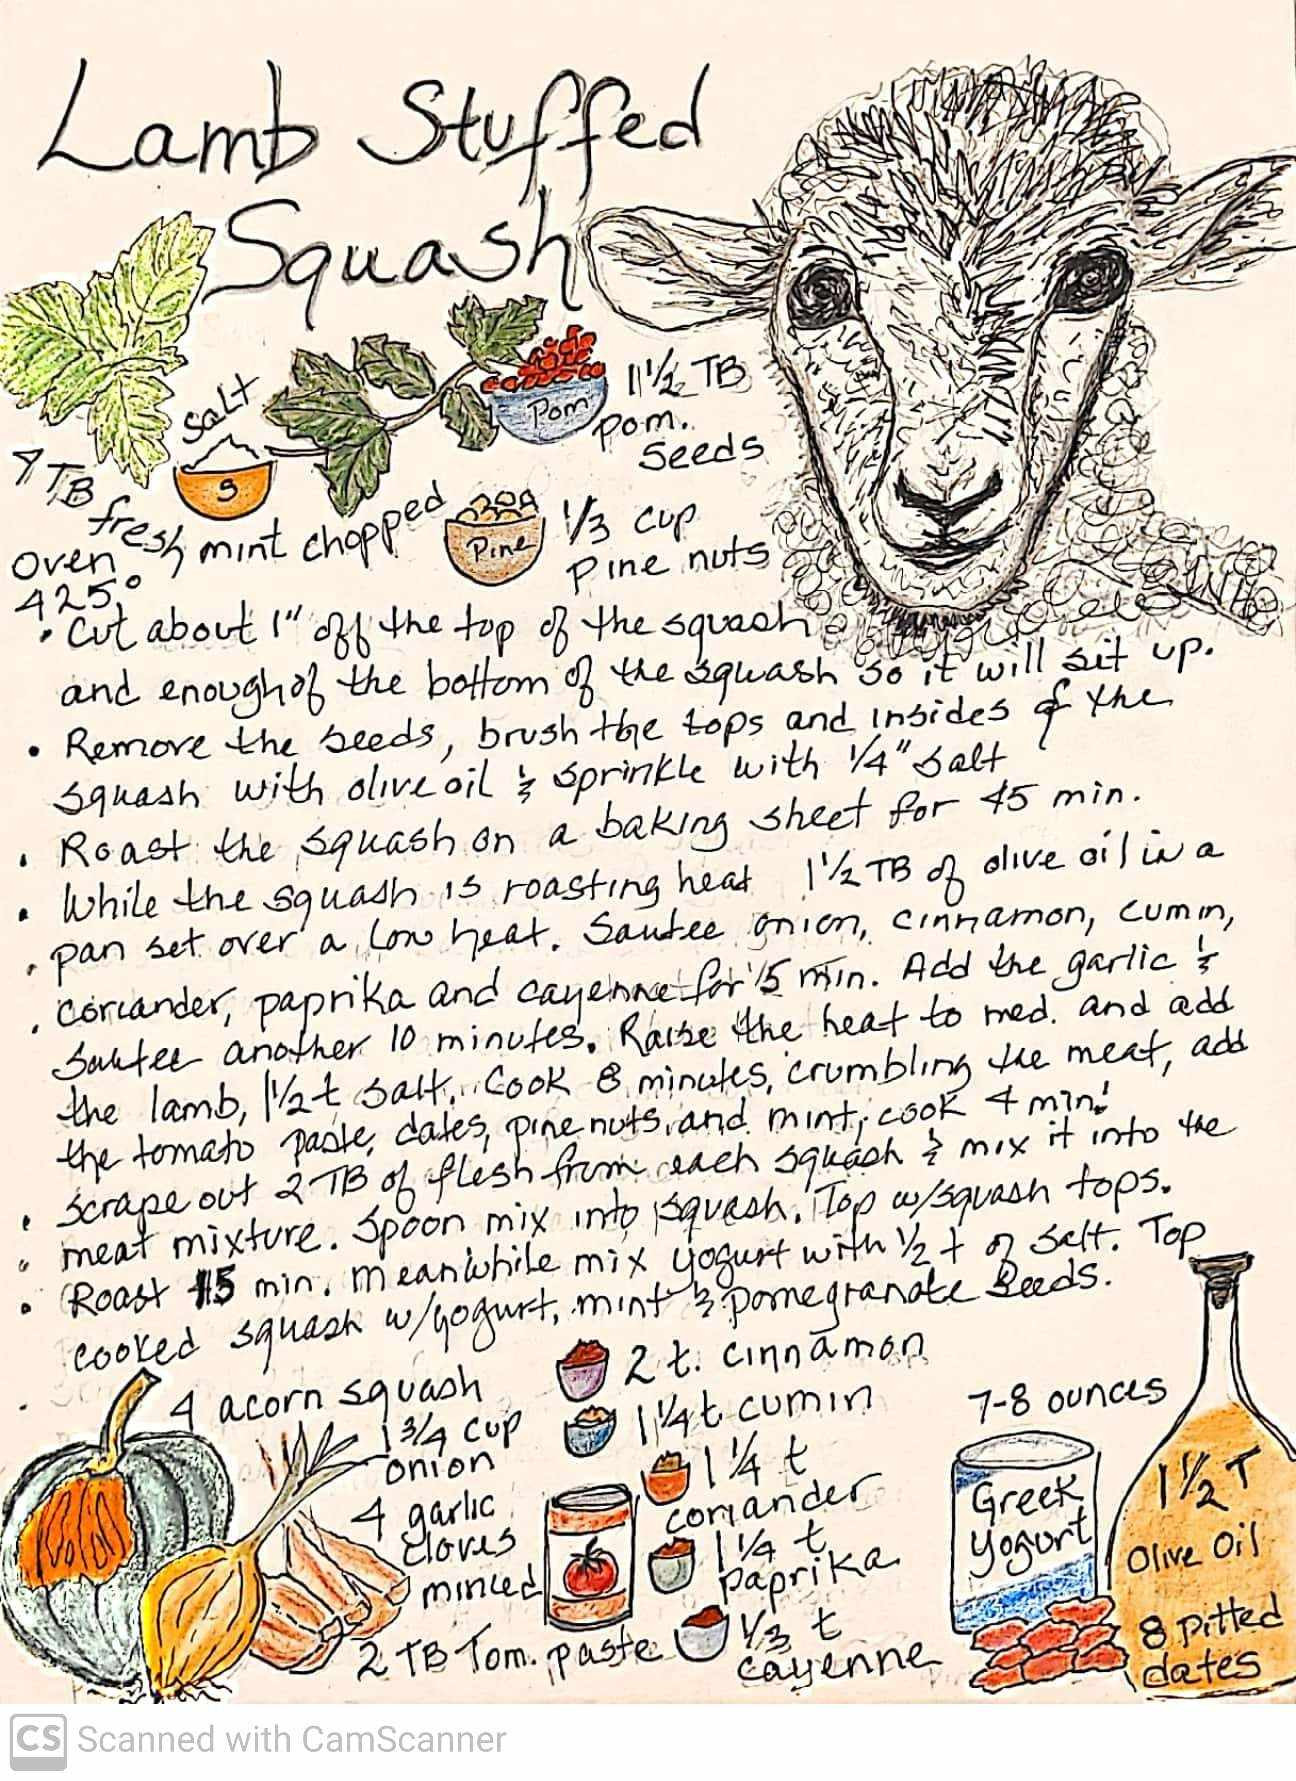 Lamb Stuffed
Squash
Salt
S
Pom
1 1/2 TB
pom.
Seeds
TB
fresh mint chopped
Pine
1/3 cup
pine nuts
oven
425°
• Cut about 1" off the top of the squash
and enough of the bottom of the squash so it will sit up.
• Remove the seeds, brush the tops and insides of the
squash with olive oil & sprinkle with 1/4" salt
• Roast the squash on a baking sheet for 45 min.
• While the squash is roasting heat 1 1/2 TB of olive oil in a
• pan set over a low heat. Sautee onion, cinnamon, cumin,
• coriander, paprika and cayenne for 15 min. Add the garlic &
sautee another 10 minutes. Raise the heat to med. and add
the lamb, 1 1/2 t salt. Cook 8 minutes, crumbling the meat, add
the tomato paste, dates, pine nuts, and mint; cook 4 min.
• scrape out 2 TB of flesh from each squash & mix it into the
• meat mixture. Spoon mix into squash. Top w/squash tops.
• Roast 15 min. meanwhile mix yogurt with 1/2 t of salt. Top
cooked squash w/yogurt, mint & pomegranate seeds.
4 acorn squash
1 3/4 cup
onion
4 garlic
cloves
minced
2 TB Tom. paste
2 t. cinnamon
1 1/4 t cumin
1 1/4 t
coriander
1 1/4 t
paprika
1/3 t
cayenne
7-8 ounces
Greek
yogurt
1 1/2 T
Olive Oil
8 pitted
dates
CS Scanned with CamScanner